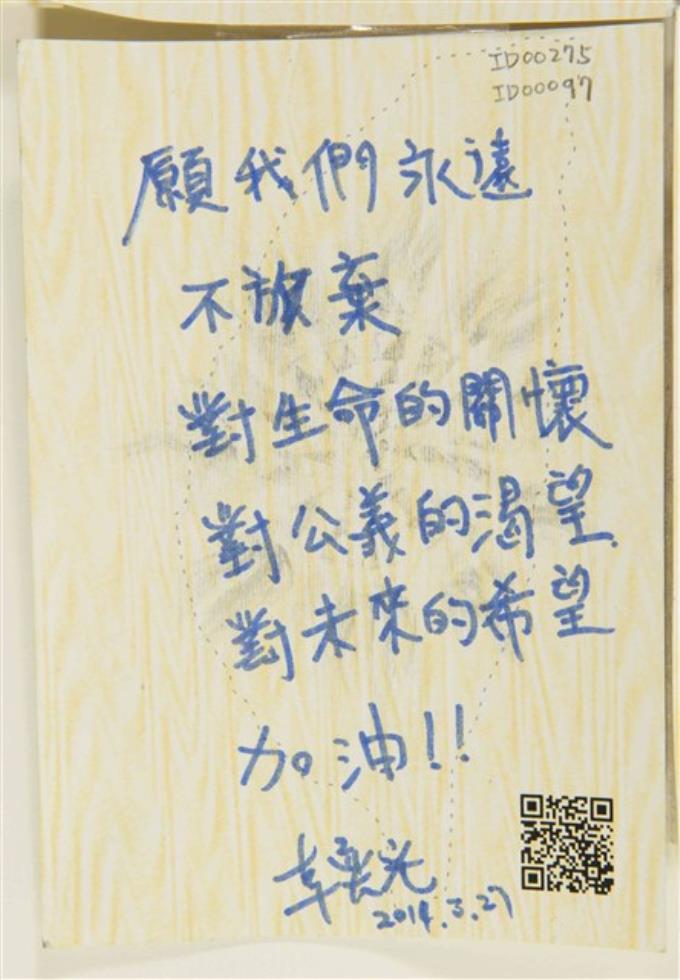 ID00275
ID00097
願我們永遠
不放棄
對生命的關懷
對公義的渴望
對未來的希望
加油!!
2014.3.27